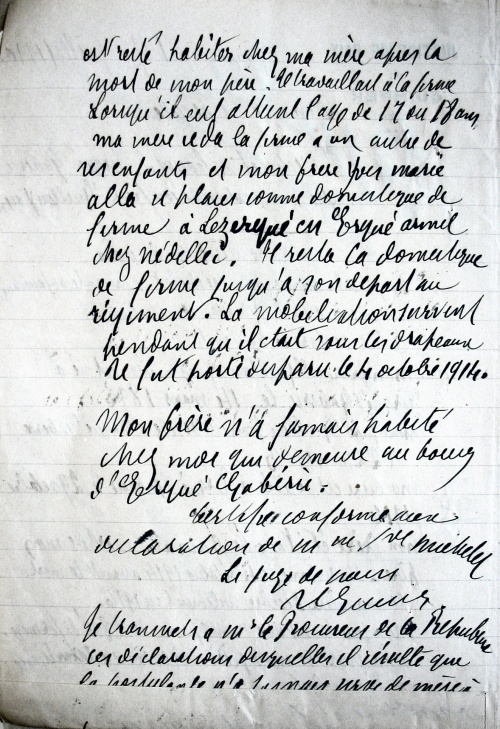 est resté habiter chez ma mère apres la
mort de mon père. Il travaillait à la firme
Lorsqu'il eut atteint l'age de 17 ou 18 ans,
ma mere ceda la firme a un autre de
ses enfants et mon frere Yves marie
alla se placer comme domestique de
firme à Lezergué en Ergué armel
chez Nédellec. Il resta là domestique
de firme jusqu'à son depart au
régiment. La mobilisation survint
pendant qu'il etait sous les drapeaux
Il fut porté disparu le 4 octobre 1914.
Mon frère n'a jamais habité
chez moi qui demeure au bourg
d'Ergué Gabéric.
Certifie conforme aux
declaration de m
Le juge de paix
Je transmets a mr le Procureur de la République
ces déclarations desquelles il résulte que
la postulante n'a jamais servi de mère à